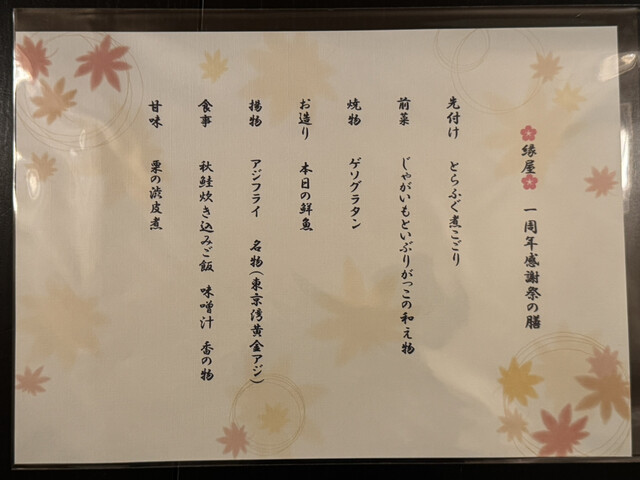 縁屋 一周年感謝祭の膳
先付け とらふぐ煮こごり
前菜 じゃがいもといぶりがっこの和え物
焼物 ゲソグラタン
お造り 本日の鮮魚
揚物 アジフライ 名物(東京湾黄金アジ)
食事 秋鮭炊き込みご飯 味噌汁 香の物
甘味 栗の渋皮煮